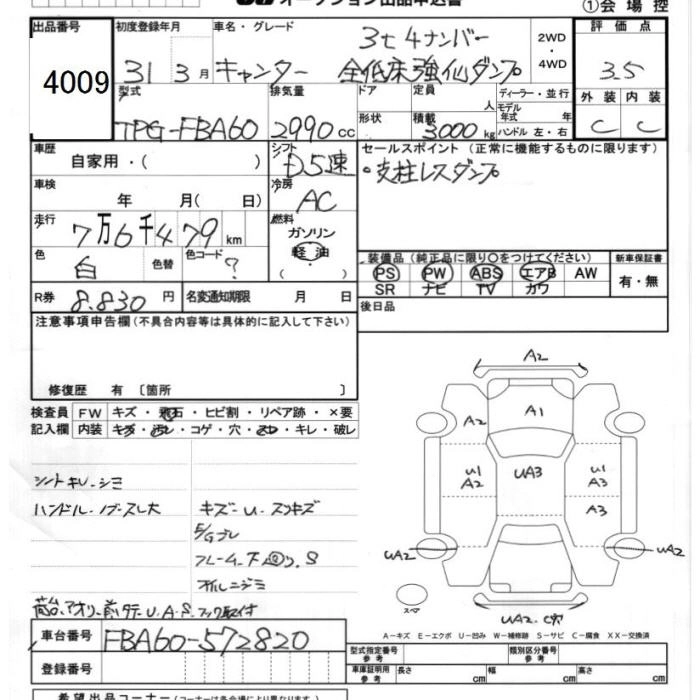 ①会場控
出品番号
4009
初度登録年月
31 3月
車名・グレード
キャンター
3t 4ナンバー
全低床強化ダンプ
2WD
4WD
評価点
3.5
型式
TPG-FBA60
排気量
2990cc
ドア
形状
定員
人
積載
3000kg
ディーラー・並行
モデル
年式 年
ハンドル 左・右
外装 内装
C C
車歴
自家用・( )
シフト
D5速
車検
年 月( 日)
冷房
AC
走行
7万6千479km
燃料
ガソリン
軽油
色
白
色替
色コード
?
R券
8.830円
名変通知期限 月 日
セールスポイント (正常に機能するものに限ります)
・支柱レスダンプ
装備品 (純正品に限り○をつけてください)
PS PW ABS エアB AW
SR ナビ TV カワ
新車保証書
有・無
後日品
注意事項申告欄 (不具合内容等は具体的に記入して下さい)
修復歴 有〔箇所 〕
検査員
記入欄
FW キズ・飛石・ヒビ割・リペア跡・×要
内装 キズ・汚レ・コゲ・穴・スレ・キレ・破レ
シートキレ・シミ
ハンドル・ノブ・スレ大
キズ・U・スリキズ
F/Gブレ
フレーム・下回り.S
オイルニジミ
荷台.アオリ.前タテ.U.A.S.フック取付
A2
A1
A2
U1
A2
UA3
U1
A3
A3
UA2
UA2
スペア
UA2.C穴
A-キズ E-エクボ U-凹み W-補修跡 S-サビ C-腐食 XX-交換済
車台番号
FBA60-572820
登録番号
型式指定番号
参考
類別区分番号
参考
車庫証明用
参考
長さ cm
幅 cm
高さ cm
希望出品コーナー